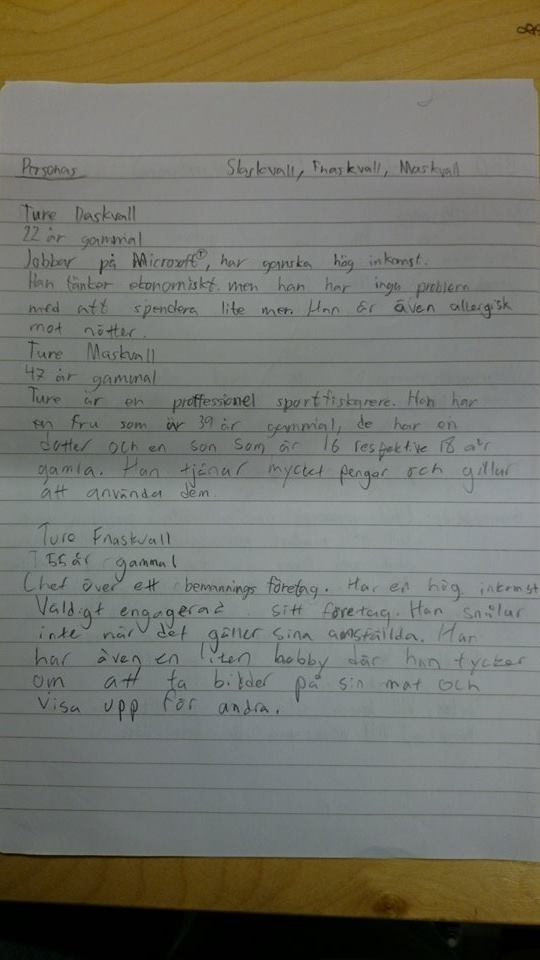 Personas Slaskvall, Fnaskvall, Maskvall
Ture Daskvall
22 år gammal
Jobbar på Microsoft, har ganska hög inkomst.
Han tänker ekonomiskt men han har inga problem
med att spendera lite mer. Han är även allergisk
mot nötter.
Ture Maskvall
47 år gammal
Ture är en proffessionel sportfiskarere. Han har
en fru som är 39 år gammal, de har en
dotter och en son som är 16 respektive 18 år
gamla. Han tjänar mycket pengar och gillar
att använda dem.
Ture Fnaskvall
55 år gammal
Chef över ett bemannings företag. Har en hög inkomst
Väldigt engagerad i sitt företag. Han snålar
inte när det gäller sina anställda. Han
har även en liten hobby där han tycker
om att ta bilder på sin mat och
visa upp för andra.